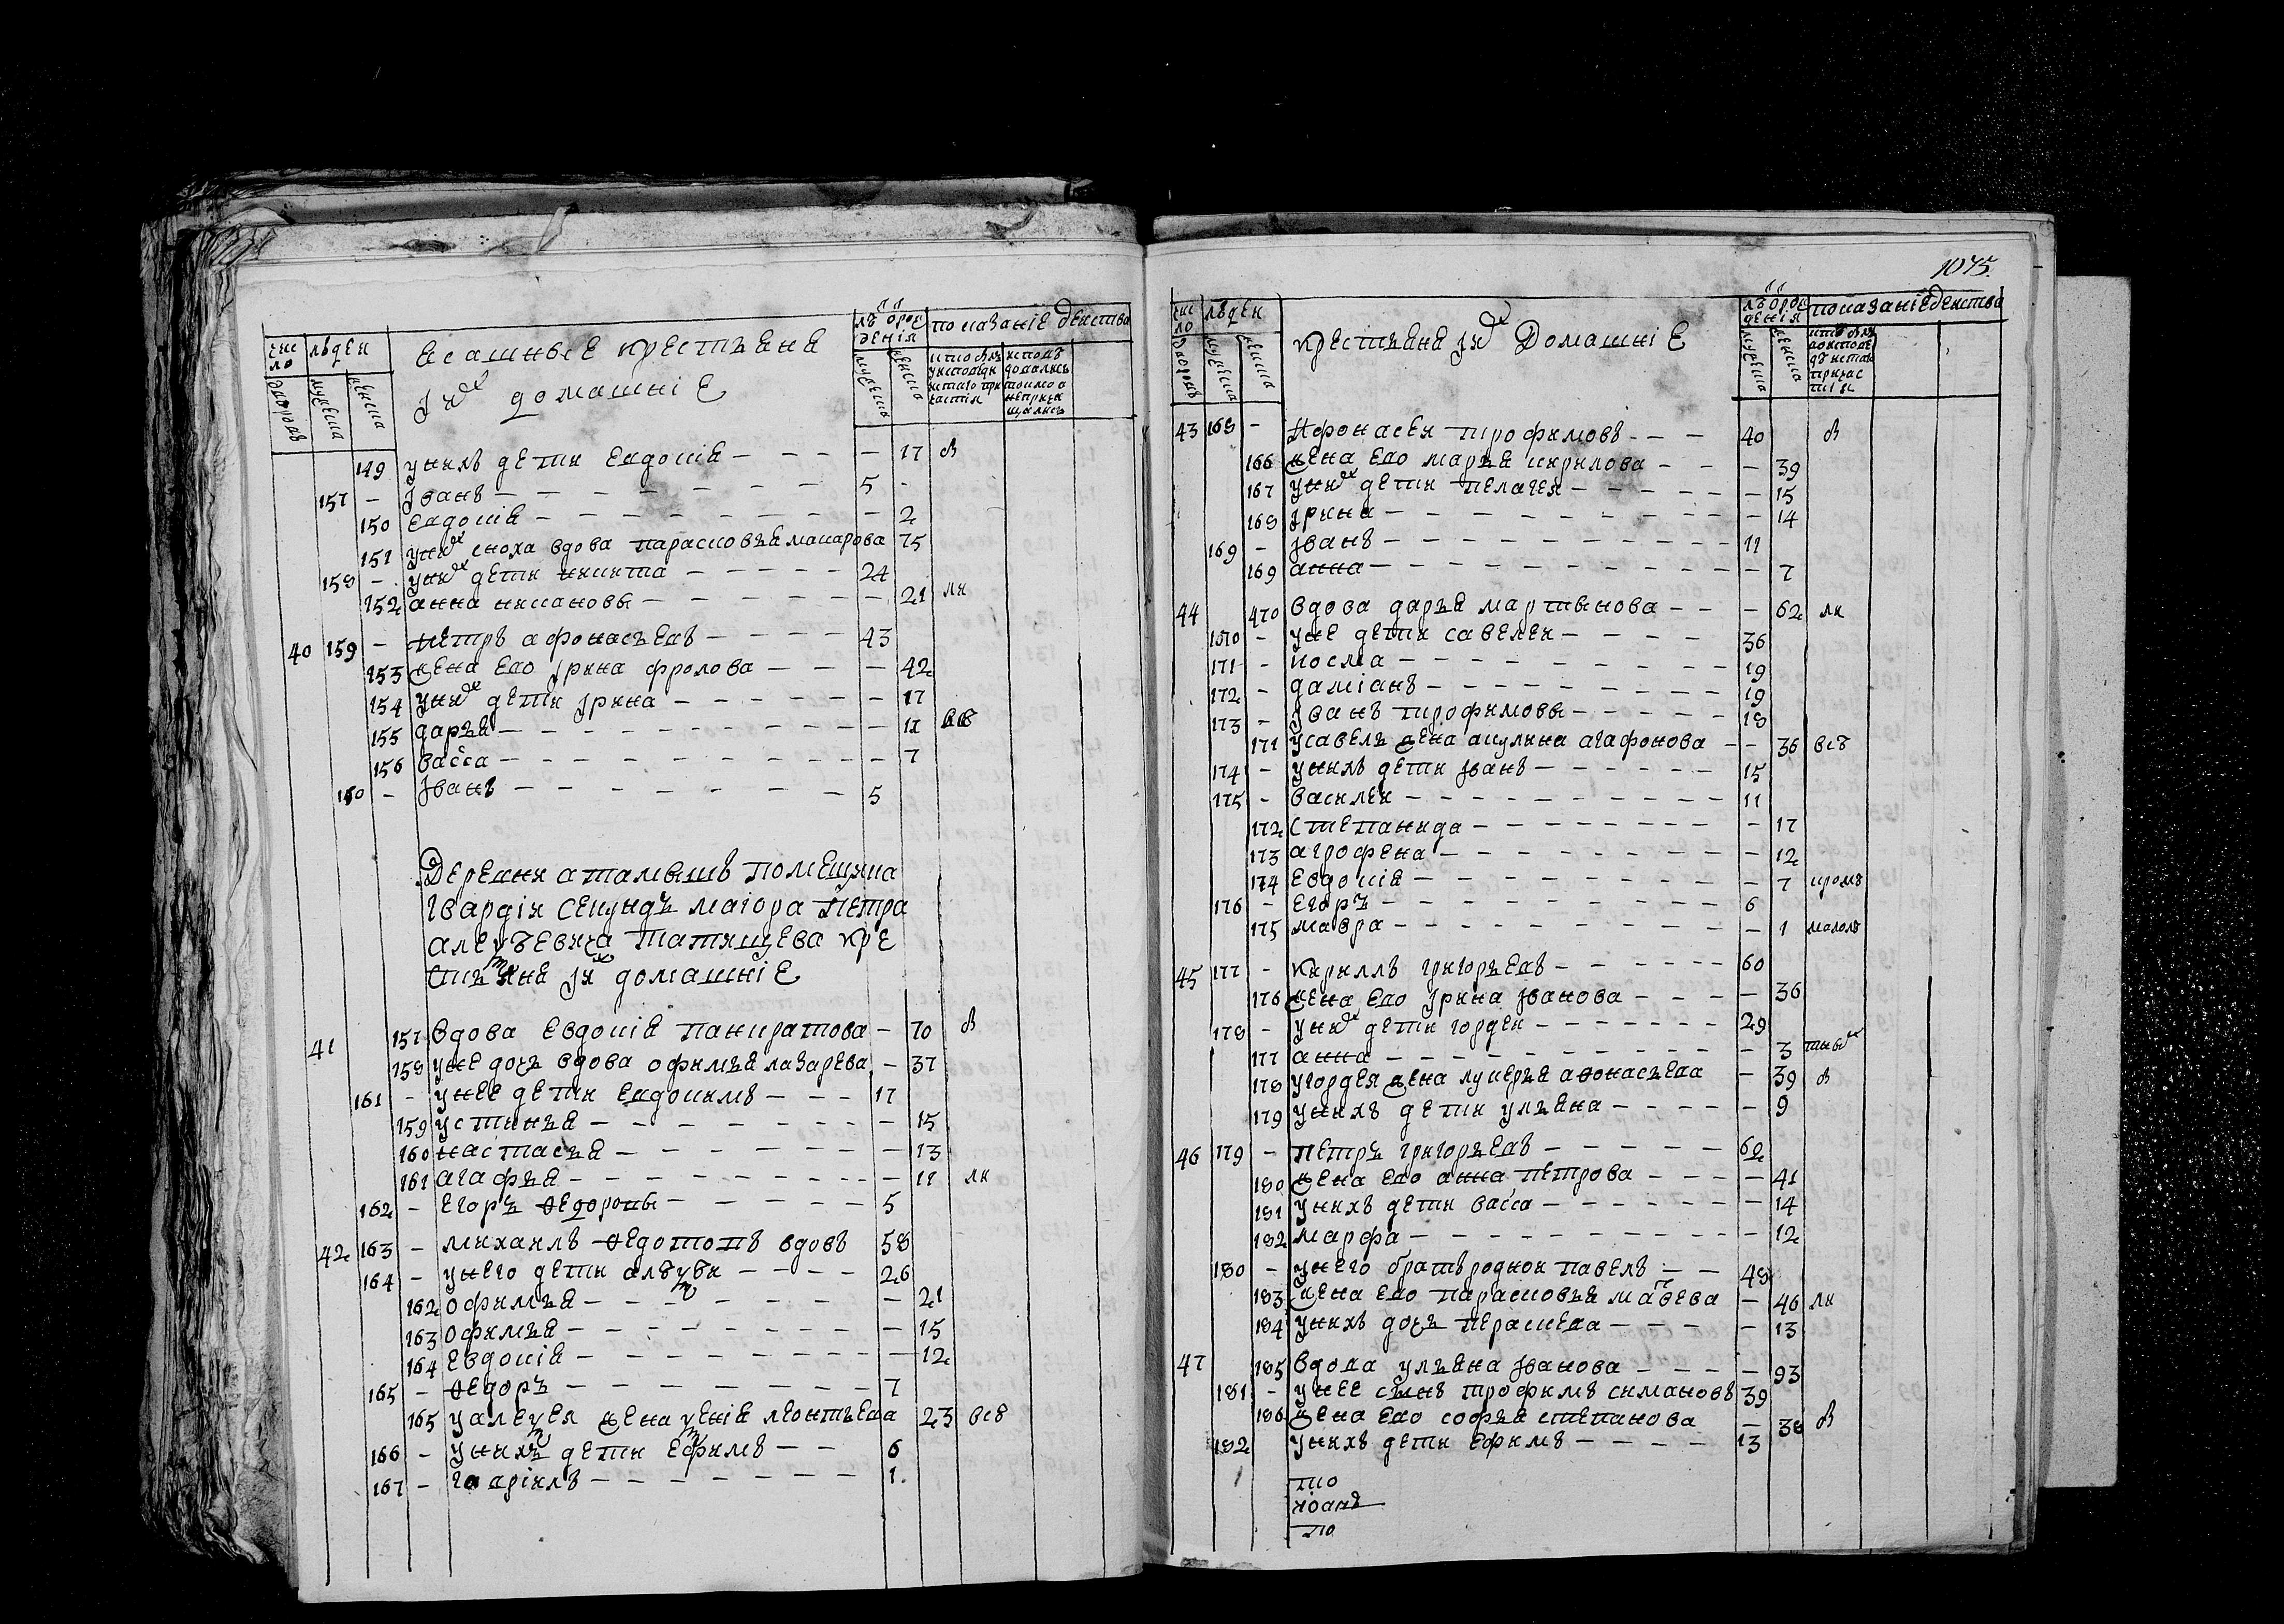 число людей
дворовъ мужеска женска
ясашныѣ крестьяна
и их домашніе
лѣ от рожденія
мужеска женска
показаніе действа
149 у нихъ дети Евдокіѣ — — — — 17 в
157 - Іванъ — — — 5 -
150 Евдокіѣ — — — — 2
151 у них сноха вдова парасковья макарова 75
158 - у них дети никита — — — 24
152 анна никановы — — — — 21 ли
40 159 - петръ афонасьевъ — — — 43
153 жена ево Ірина фролова — — — — 42
154 у них дети Ірина — — — — 17
155 дарья — — — — 11 всѣ
156 васса — — — — 7
160 - Іванъ — — — 5
Деревни атамышъ помещика
гвардіи секундъ маіора Петра
алексѣевича татищева кре
стьяня и их домашніе
41 157 вдова Евдокіѣ панкратова — 70 в
158 у нее дочь вдова офимья лазарева — 37
161 - у нее дети Евдокимъ — — — 17
159 устинья — — — — 15
160 настасья — — — — 13
161 агафья — — — — 11 ли
162 - Егоръ Ѳедоровы — — — 5
42 163 - михаилъ Ѳедотовъ вдовъ 58
164 - у него дети алѣѯѣи — — — 26
162 офимья — — — — 21
163 офимья — — — — 15
164 Евдокіѣ — — — — 12
165 - Ѳедоръ — — — 7
165 у алеѯея жена ѯеніѣ леонтьева 23 всѣ
166 - у нихъ дети Ефимъ — — 6
167 - гавріилъ — — — 1.
1075.
число людей
дворовъ мужеска женска
крестьяна и их Домашніе
лѣ от рожденія
мужеска женска
показаніе действа
43 168 - Афонасеи трофимовъ — — — 40 в
166 жена ево марья кирилова — — — 39
167 у них дети пелагея — — — 15
168 Ірина — — — 14
169 - Іванъ — — — 11
169 анна — — — 7
44 170 вдова дарья мартынова — — — 62 ли
170 - у нее дети савелеи — — — 36
171 - косма — — — 19
172 - даміанъ — — — 19
173 - Іванъ трофимовы — — — 18
171 у савелъ жена акулина агафонова — — 36 всѣ
174 - у нихъ дети Іванъ — — — 15
175 - василеи — — — 11
172 степанида — — — 17
173 агрофена — — — 12
174 Евдокіѣ — — — 7 кромѣ
176 - Егоръ — — — 6
175 мавра — — — 1 малолѣ
45 177 - кириллъ григорьевъ — — — 60
176 жена ево Ірина Іванова — — — 36
178 - у них дети гордеи — — — 29
177 анна — — — 3
178 у гордея жена лукерья аѳонасьева — 39 в
179 у нихъ дети ульяна — — — 9
46 179 - петръ григорьевъ — — — 62
180 жена ево анна петрова — — — 41
181 у нихъ дети васса — — — 14
182 марфа — — — 12
180 - у него братъ роднои павелъ — — 48
183 жена ево парасковья матѳева — 46 ли
184 у нихъ дочь пераскева — — — 13
47 185 вдова ульяна Іванова — — — 93
181 - у нее сынъ трофимъ симановъ 39
186 жена ево софья степанова — 38 в
182 у нихъ дети Ефимъ — — — 13